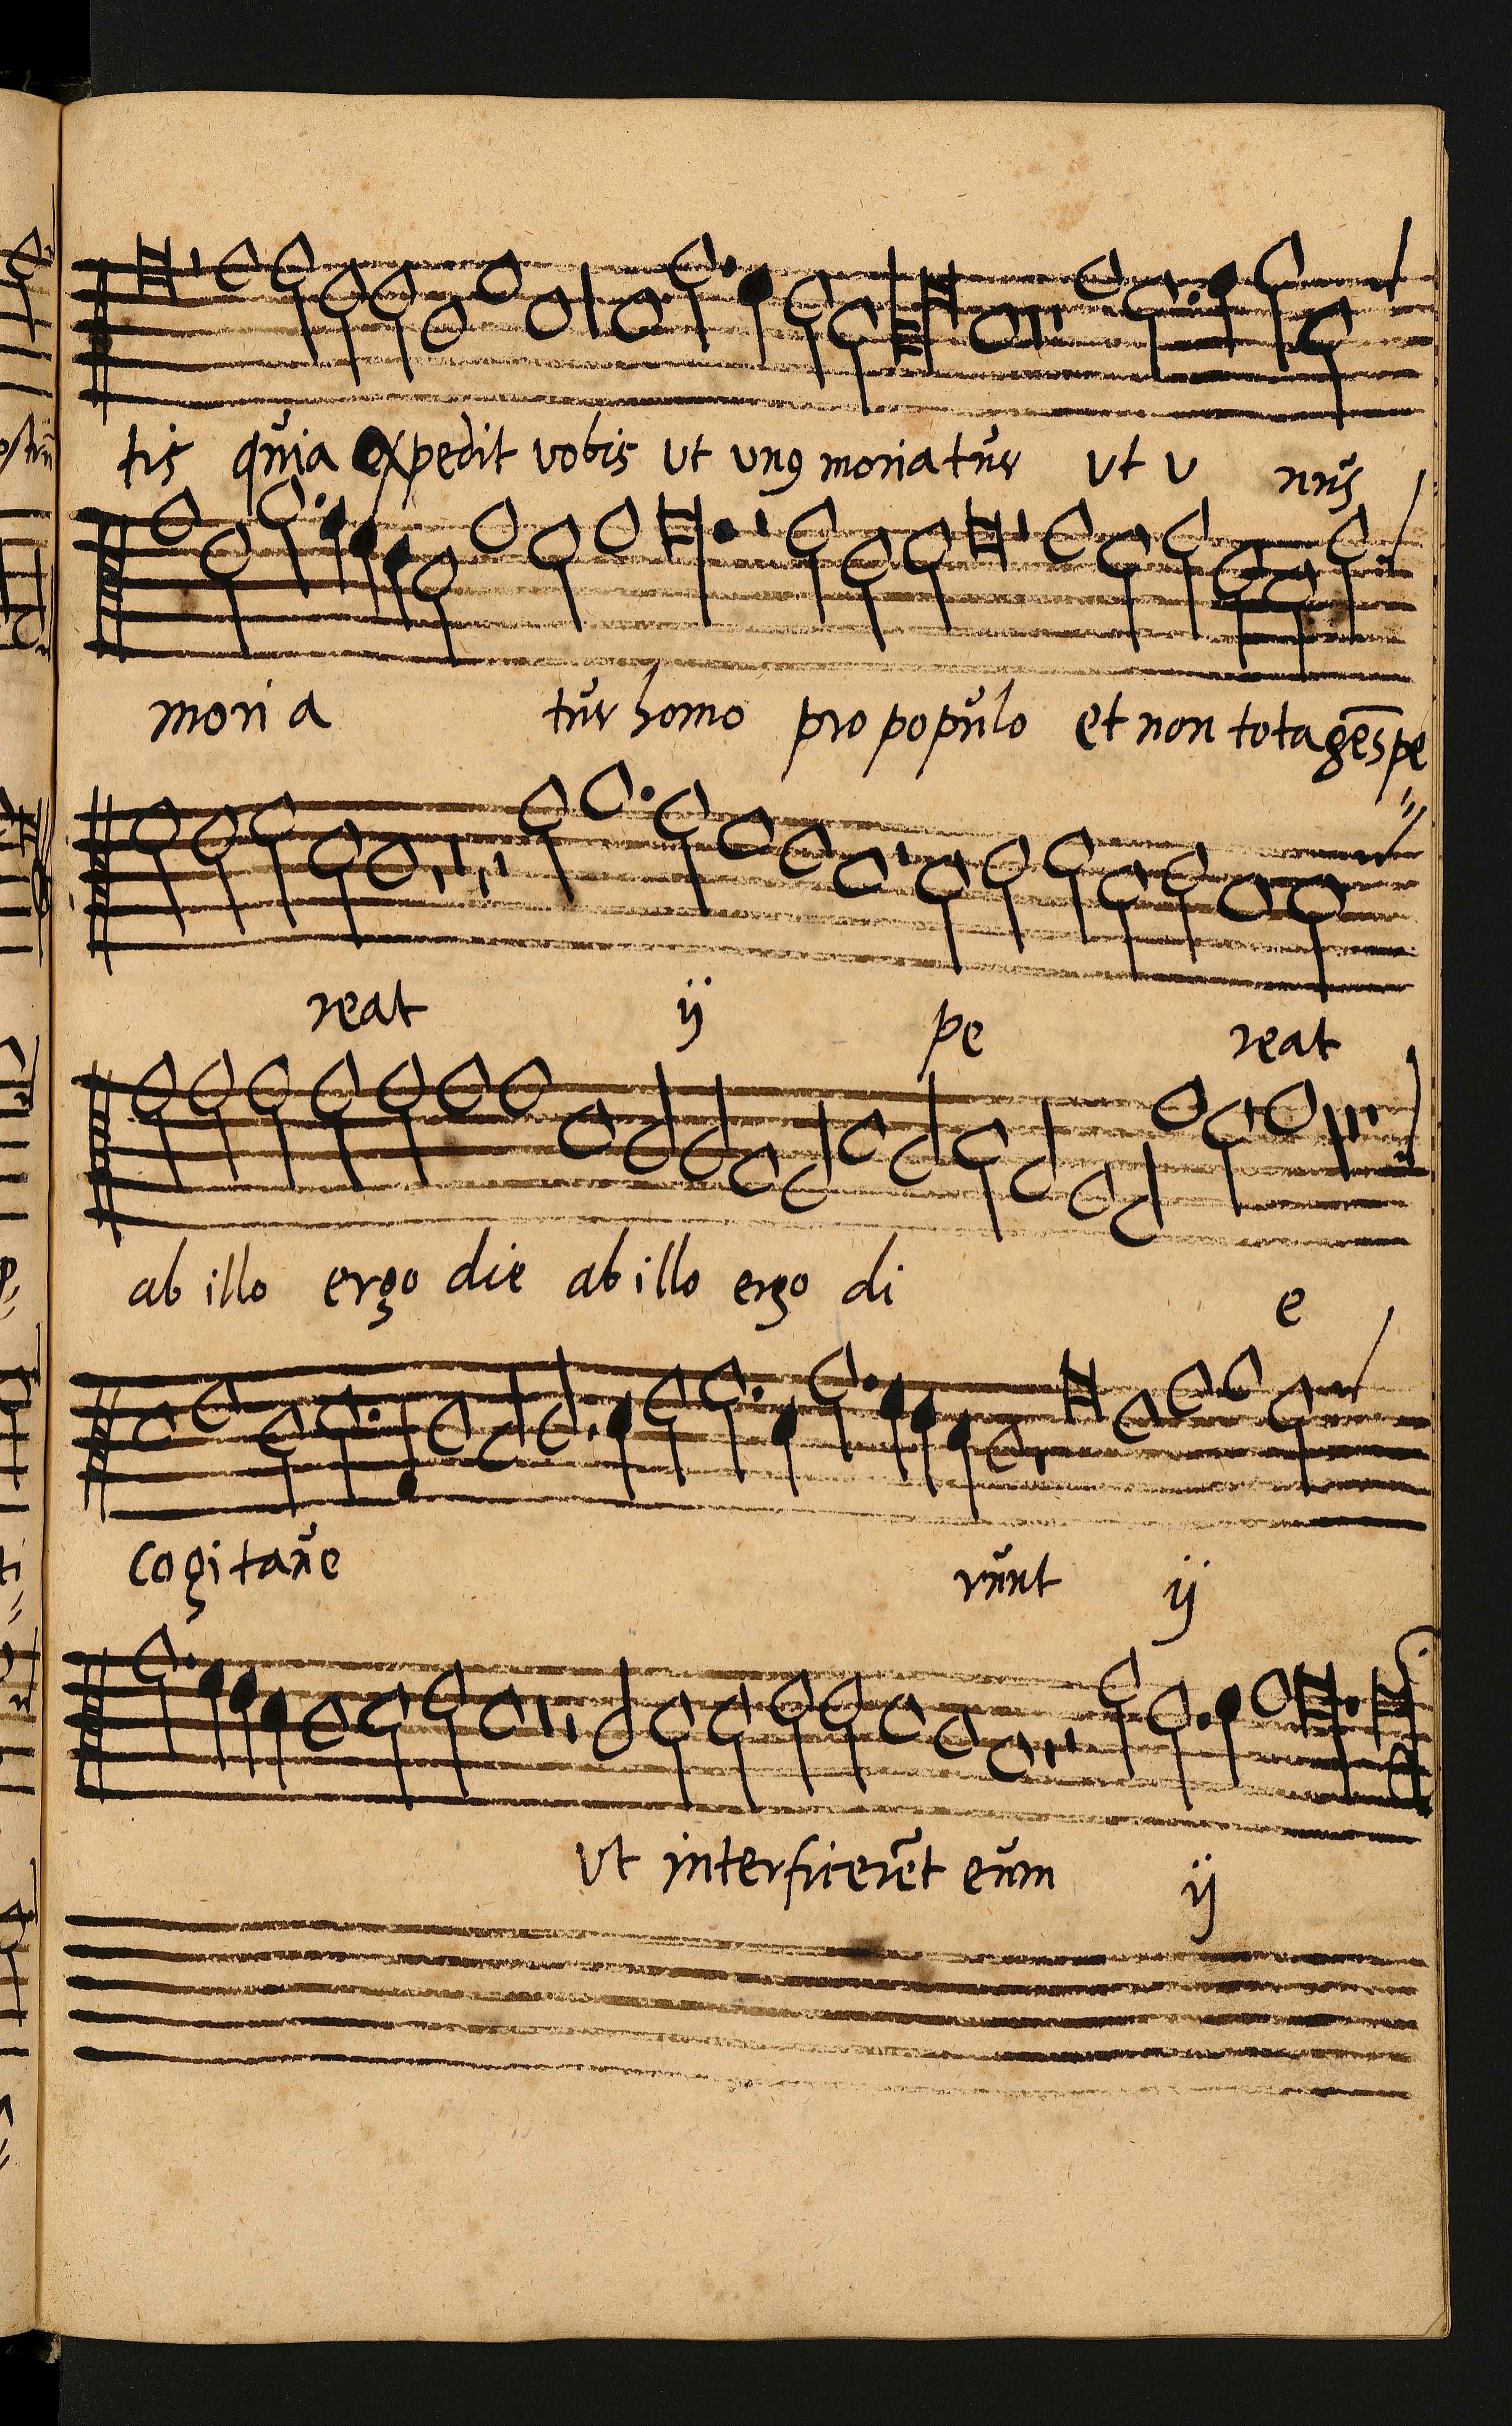 tis quia expedit vobis ut unꝯ moriatur ut u nus
moria tur homo pro populo et non tota gēs pe=
reat ij pe reat
ab illo ergo die ab illo ergo di e
cogitave runt ij
ut interficerēt eum ij